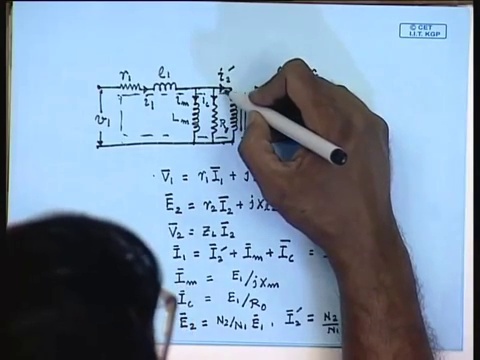 © CET
I.I.T. KGP
r₁ l₁ i₂′
i₁ iₘ i꜀
v₁ Lₘ R₀
V̄₁ = r₁Ī₁ + j
Ē₂ = r₂Ī₂ + jx₂
V̄₂ = Z_L Ī₂
Ī₁ = Ī₂′ + Īₘ + Ī_c =
Īₘ = E₁/jxₘ
Ī_c = E₁/R₀
Ē₂ = N₂/N₁ Ē₁ , Ī₂′ = N₂/N₁